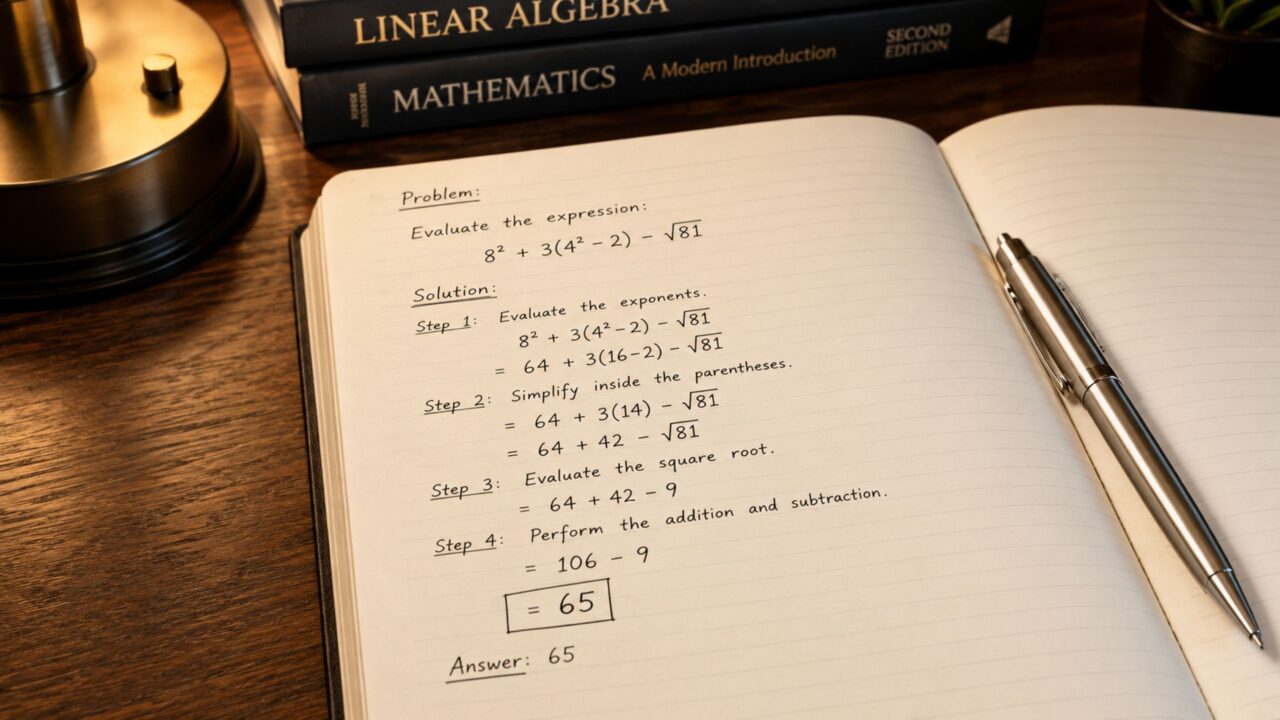 LINEAR ALGEBRA
MATHEMATICS A Modern Introduction SECOND EDITION
Problem:
Evaluate the expression:
8² + 3(4² − 2) − √81
Solution:
Step 1: Evaluate the exponents.
8² + 3(4² − 2) − √81
= 64 + 3(16 − 2) − √81
Step 2: Simplify inside the parentheses.
= 64 + 3(14) − √81
= 64 + 42 − √81
Step 3: Evaluate the square root.
= 64 + 42 − 9
Step 4: Perform the addition and subtraction.
= 106 − 9
= 65
Answer: 65